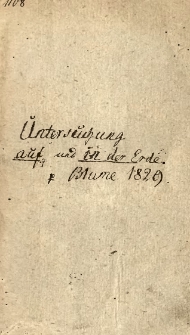 1108
Untersuchung
auf und in der Erde
Blume 1829